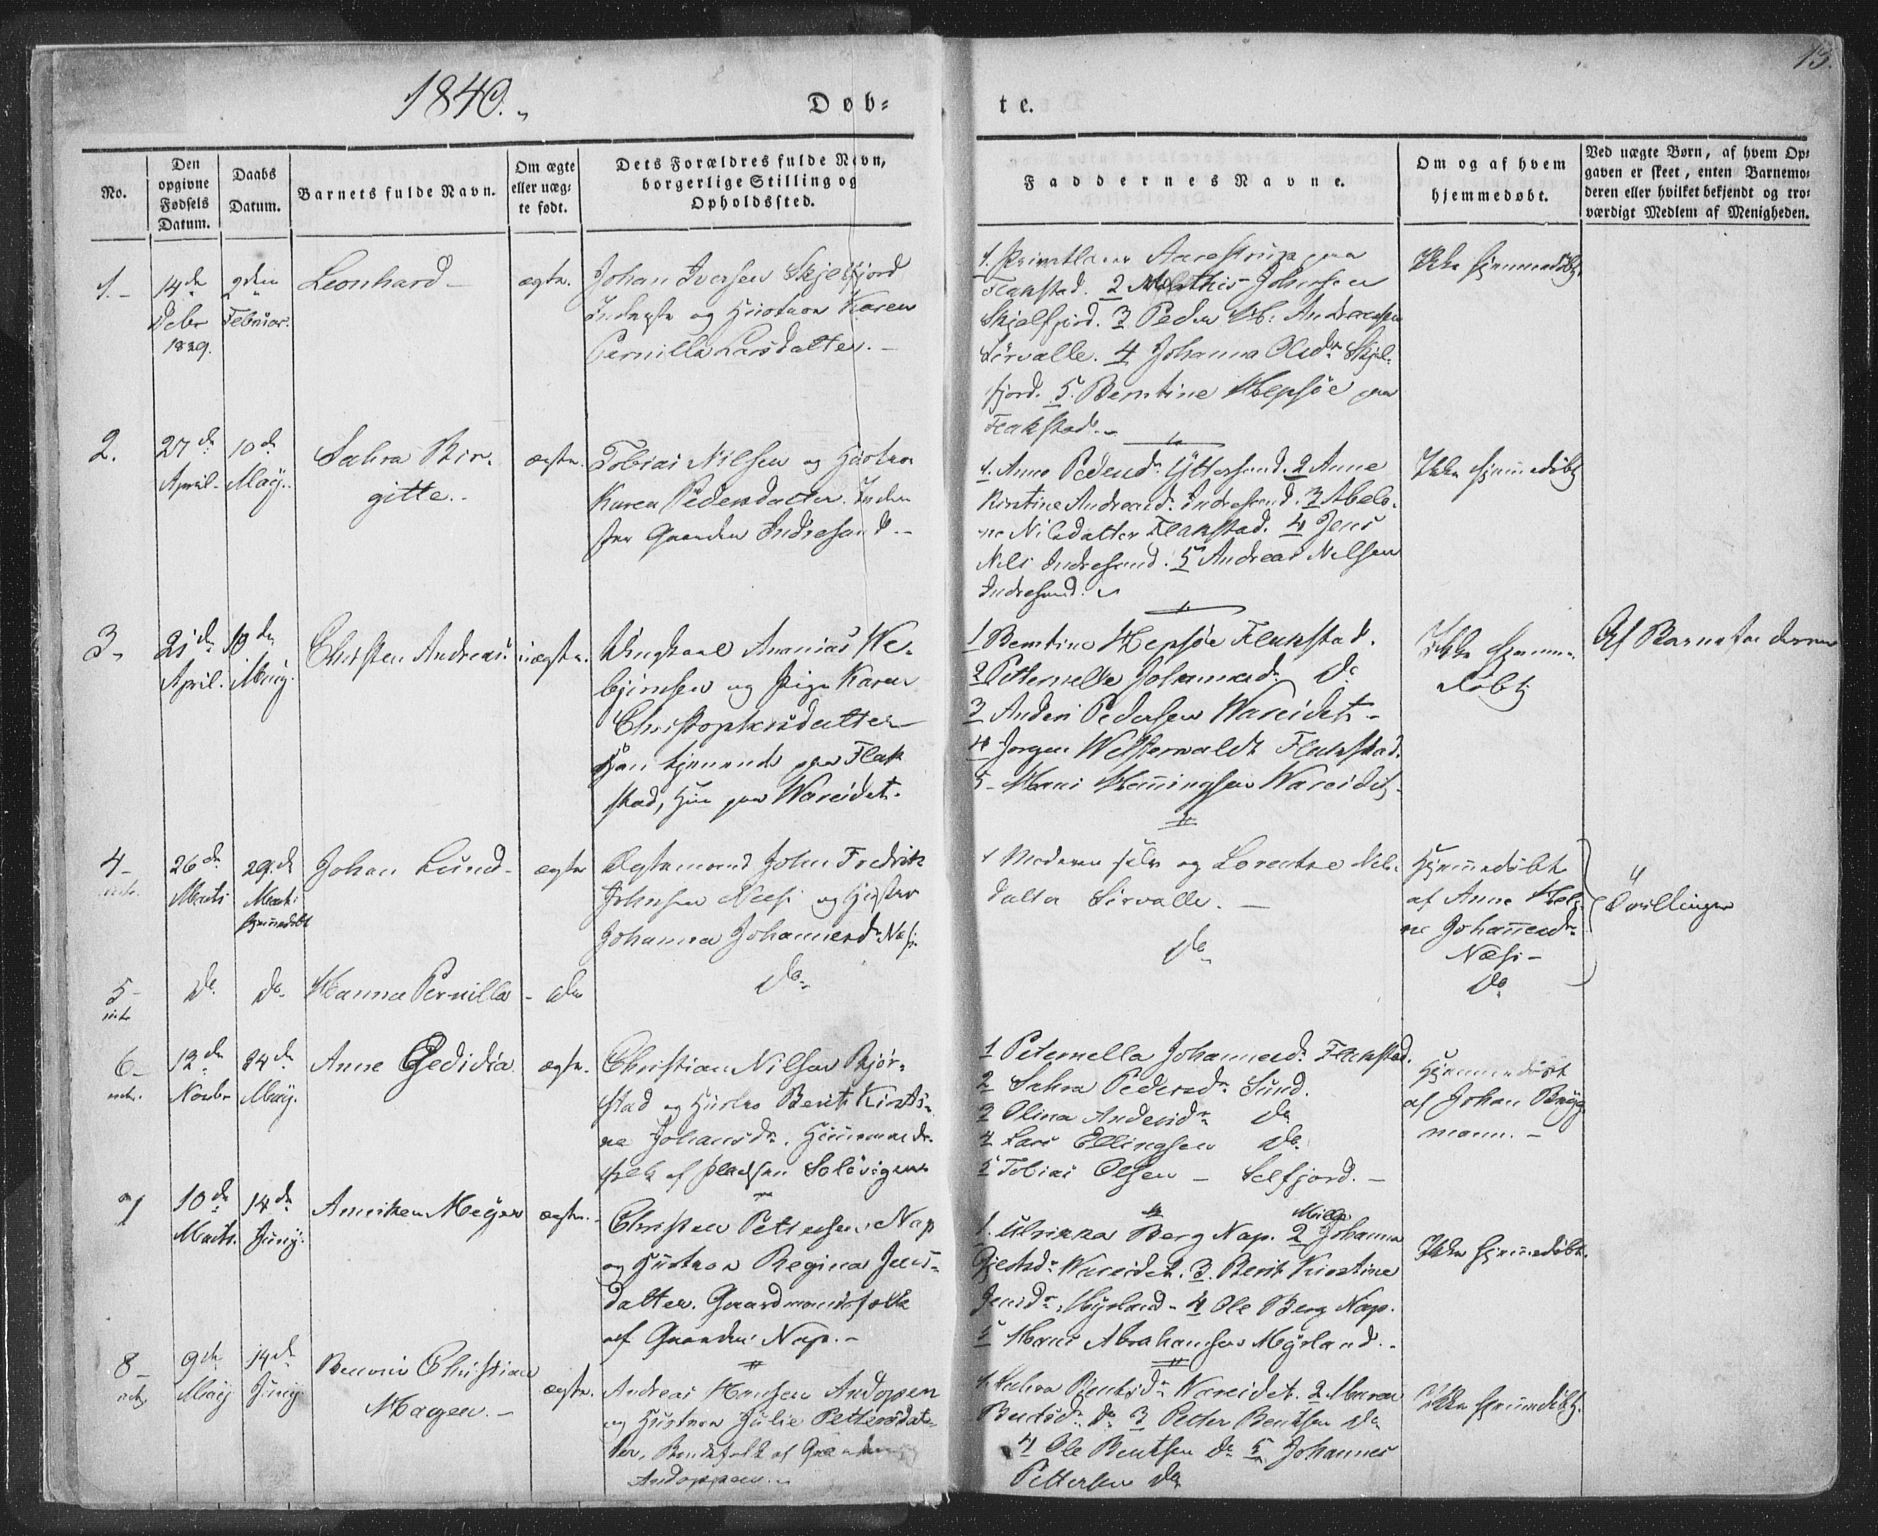 1840.
Døb-
te.
13.
No.
Den opgivne Fødsels Datum.
Daabs Datum.
Barnets fulde Navn.
Om ægte eller uæg-te født.
Dets Forældres fulde Navn, borgerlige Stilling og Opholdssted.
Faddernes Navne.
Om og af hvem hjemmedøbt.
Ved uægte Børn, af hvem Op-
gaven er skeet, enten Barnemo-
deren eller hvilket bekjendt og tro-
værdigt Medlem af Menigheden.
1.-
14de
Debr
1839.
9den
Februar.
Leonhard
ægte.
Johan Iversen Skjelfjord
og Hustrue Karen
Pernilla Larsdatter.
1. Aarestrup paa
Flakstad. 2 Mathis Johnsen
Skjelfjord. 3 Peder Andreassen
4 Johanna Olsdr Skjel-
fjord. 5. Berntine Hepsøe paa
Flakstad.
Ikke hjemmedøbt.
2.
27de
April
10de
Maij.
Sahra Bir-
gitte.
ægte.
Tobias Nilsen og Hustrue
Karen Pedersdatter. Inder
ster Gaarden Indresand.
1. Anne Pedersdr Yttersand. 2 Anne
Kirstine Andreasdr Indresand. 3 Abelo-
ne Nilsdatter Flakstad. 4 Jens
Nils Indresand. 5 Andreas Nilsen
Indresand.
Ikke hjemmedøbt
3.
21de
April.
10de
Maij.
Christen Andreas.
uægte.
Ungkarl Ananias
og Pige Karen
Christophersdatter
Han tjenende paa Flak
stad, Hun paa Wareidet.
1 Berntine Hepsøe Flakstad.
2 Petternelle Johannesdr Do
3 Anders Pedersen Wareidet
4 Jørgen Westerwaldt Flakstad.
5 Hans Henningsen Wareidet
Ikke hjemme-
døbt
Af Barnefaderen
4
26de
Marts
29de
Marts
hjemmedøbt
Johan Lund
ægte
Johan Fredrik
Johnsen Næsi og Hustru
Johanna Johannesdr
1 Moderen selv og Lorentze Nils-
datter
Hjemmedøbt
af Anne
Johannesdr
Næsi
Tvillinger
5
Do
Do
Hanna Pernilla
Do
Do
Do
Do
6
12de
Novbr
24de
Maij.
Anne Gedidia
ægte.
Christian Nilsen Bjør-
stad og Hustru Berit Kirsti-
ne Johansdr. Huusmands-
folk af Pladsen Soløvigen
1 Peternella Johannesdr Flakstad.
2 Sahra Pedersdr Sund.
3 Olina Andersdr Do
4 Lars Ellingsen Do
5 Tobias Olsen Selfjord.
Hjemmedøbt
af Johan Brüg
mann.
7
10de
Marts.
14de
Junij.
Anniken Meyer
ægte.
Christen Pettersen Nap
og Hustrue Regina Jens-
datter. Gaardmandsfolk
af Gaarden Nap.
1. Ulrikka Berg Nap. 2 Johanna
Wareidet. 3. Berit Kirstine
Jensdr Myrland 4 Ole Berg Nap.
5 Hans Abrahamsen Myrland.
Ikke hjemmedøbt.
8
9de
Maij
14de
Junij
Christian
Hagen.
ægte.
Andreas Hansen Andoppen
og Hustrue Julie Pettersdat-
ter, Bondefolk af Gaarden
Andoppen.
1. Sahra Bentsdr Wareidet. 2 Maren
Bentsdr Do 3 Petter Bentsen Do
4 Ole Bentsen Do 5 Johannes
Pettersen Do
Ikke hjemmedøbt.